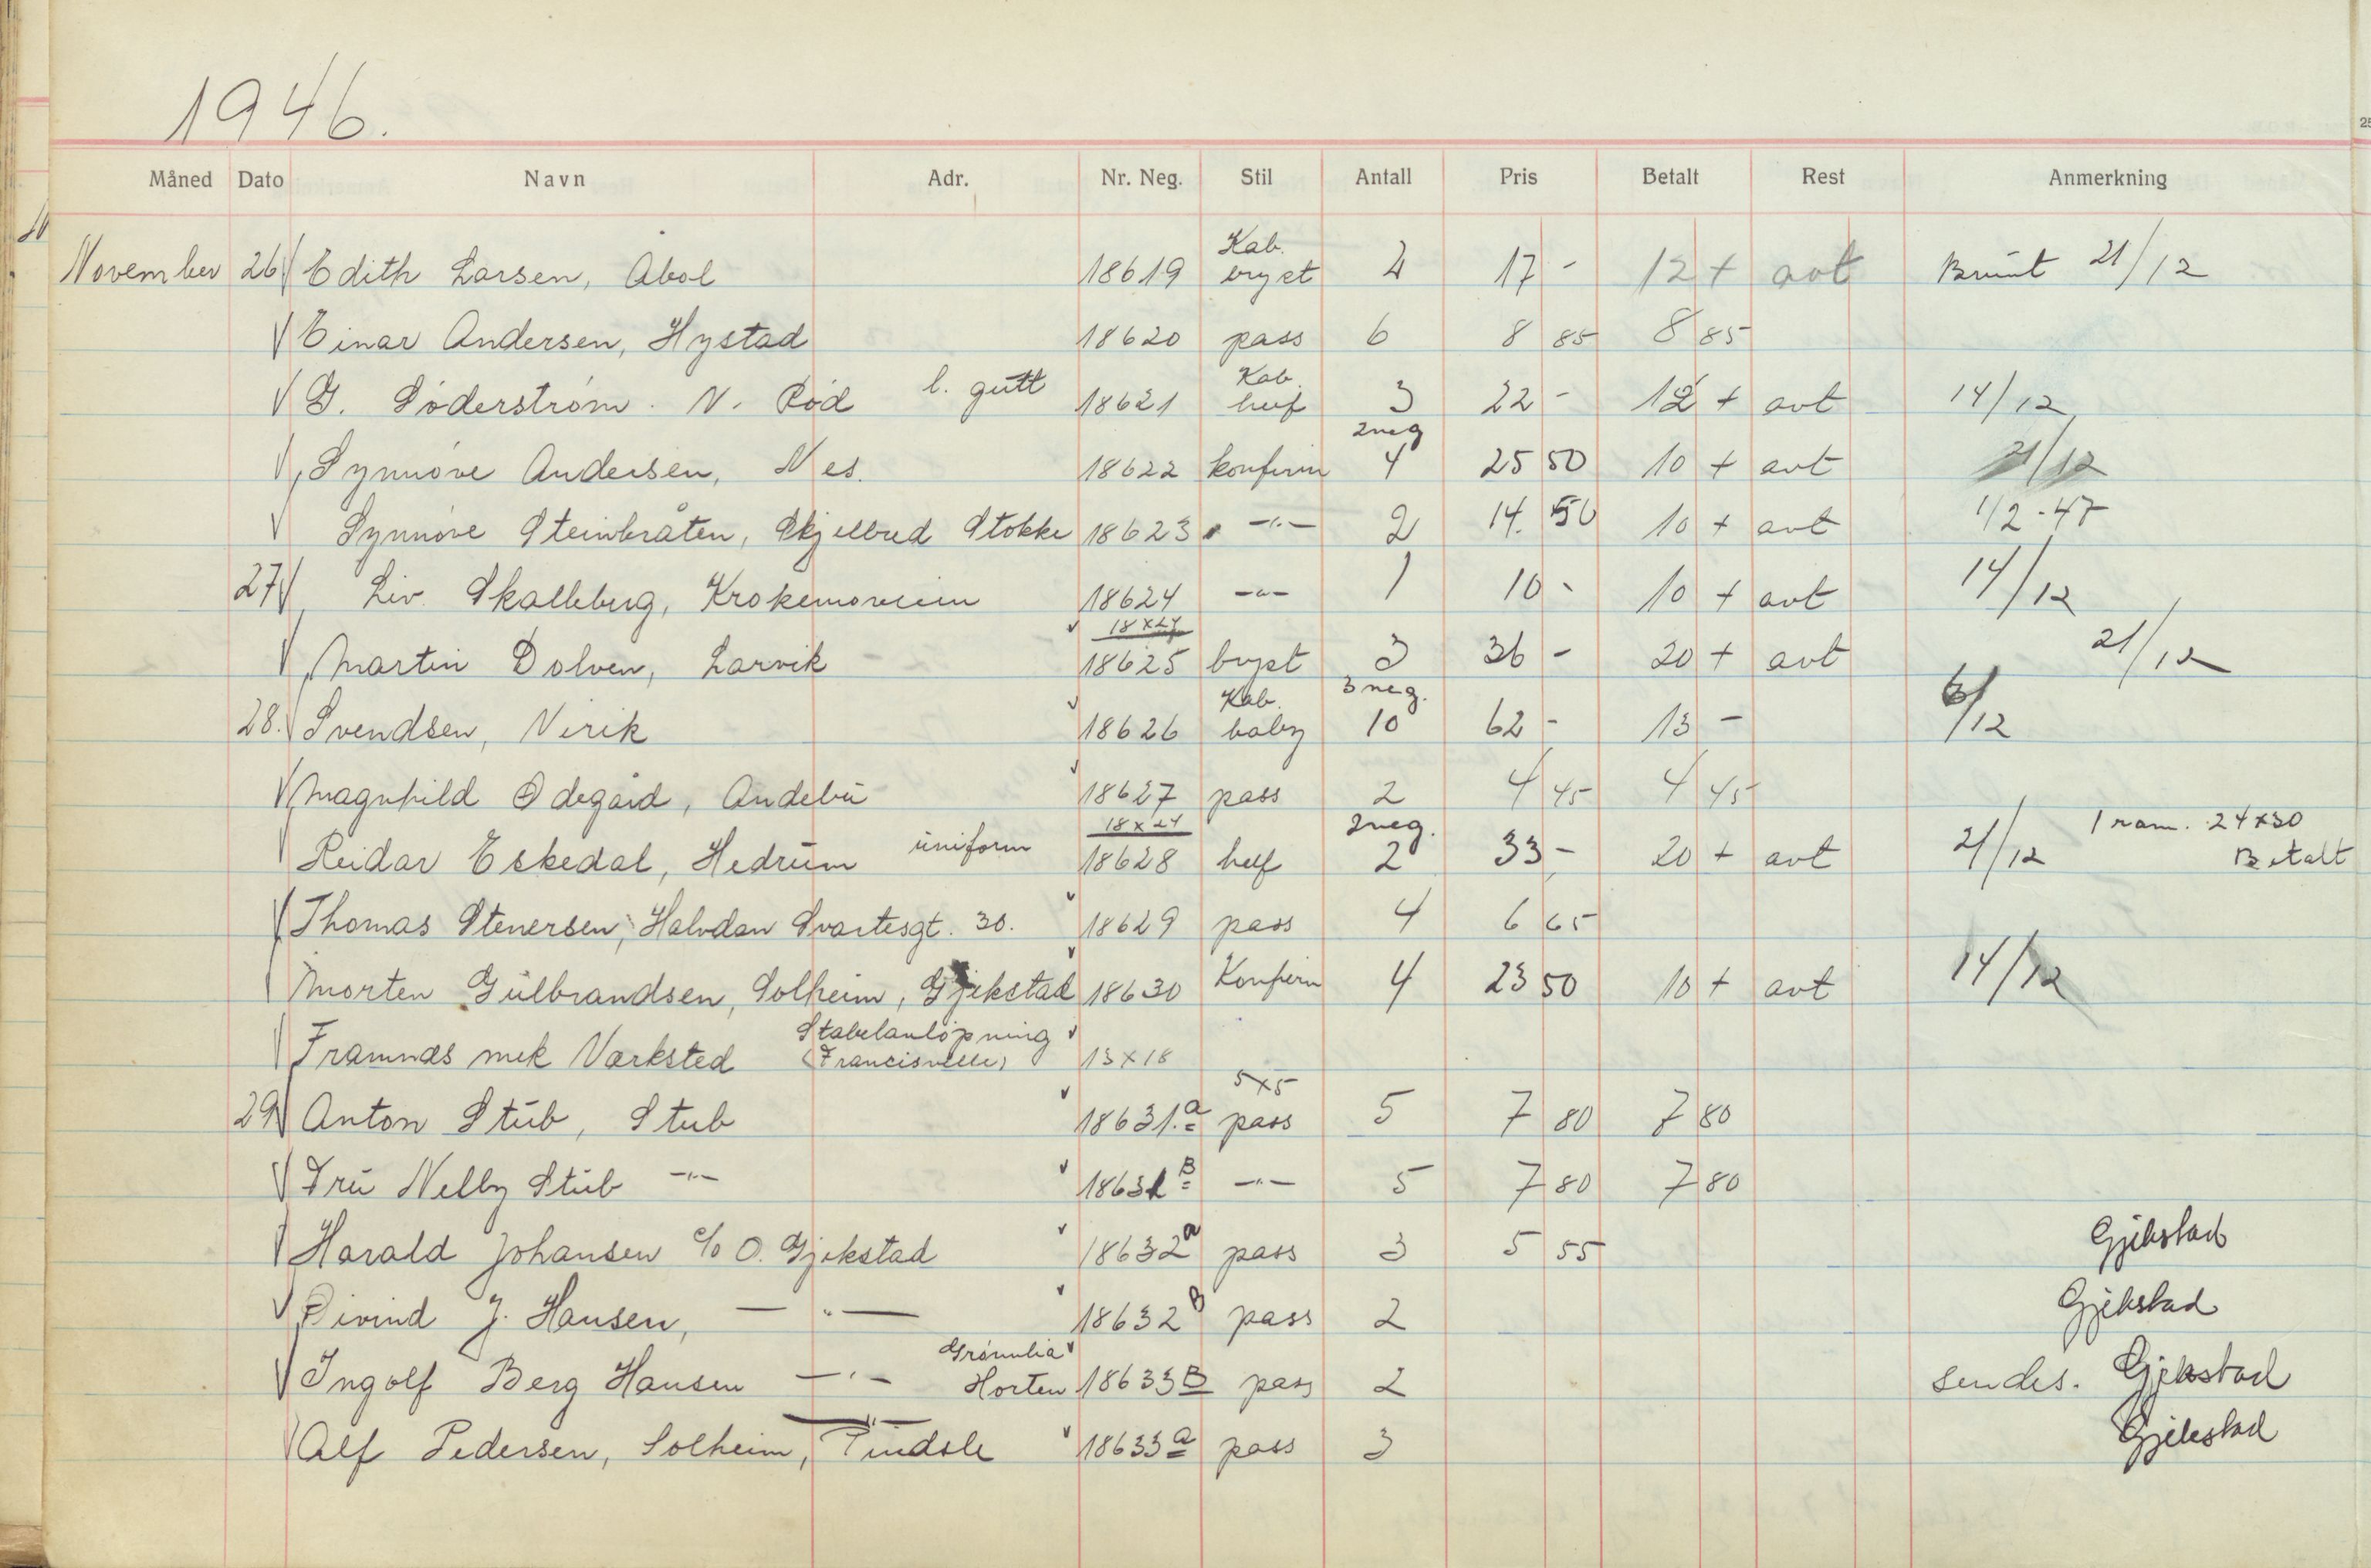 1946.
Måned Dato Navn Adr. Nr. Neg. Stil Antall Pris Betalt Rest Anmerkning
November 26 Edith Larsen, Abol 18619 Kab. bryst 4 17 - 12 + avt Brunt 21/12
Einar Andersen, Hystad 18620 pass 6 8 85 8 85
G. Söderström. N. Röd l. gutt 18621 Kab. helf 3 22 - 12 + avt 14/12
Synnöve Andersen, Nes. 18622 konfirm 2 neg 4 25 50 10 + avt 21/12
Synnöve Steinbråten, Skjelbred Stokke 18623 -"- 2 14. 50 10 + avt 1/2-47
27 Liv Skalleberg, Krokemoveien 18624 -"- 1 10 - 10 + avt 14/12
Martin Dolven, Larvik 18x24 18625 bryst 3 36 - 20 + avt 21/12
28. Svendsen, Virik 18626 Kab. baby 3 neg. 10 62 - 13 - 6/12
Magnhild Ødegård, Andebu 18627 pass 2 4 45 4 45
Reidar Eskedal, Hedrum uniform 18x24 18628 helf 2 neg. 2 33 - 20 + avt 21/12 1 ram. 24x30 Betalt
Thomas Stenersen, Halvdan Svartesgt. 30. 18629 pass 4 6 65
Morten Gulbrandsen, Solheim, Gjekstad 18630 Konfirm 4 23 50 10 + avt 14/12
Framnæs mek Værksted Stabelavlöpning (Francisville) 13x18
29 Anton Stub, Stub 18631.a 5x5 pass 5 7 80 7 80
Fru Nelly Stub -"- 18631 B -"- 5 7 80 7 80
Harald Johansen c/o O. Gjekstad 18632 a pass 3 5 55 Gjekstad
Øivind J. Hansen, -"- 18632 B pass 2 Gjekstad
Ingolf Berg Hansen -"- Grönnlia Horten 18633 B pass 2 sendes. Gjekstad
Alf Pedersen, Solheim, -"- Pindsle 18633 a pass 3 Gjekstad